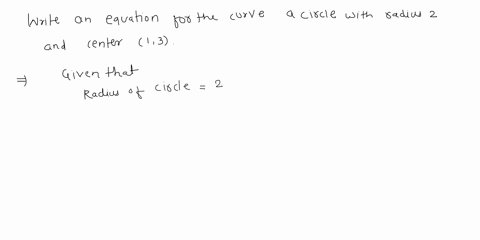 Write an equation for the curve a circle with radius 2
and center (1,3).
⇒ Given that
Radius of circle = 2